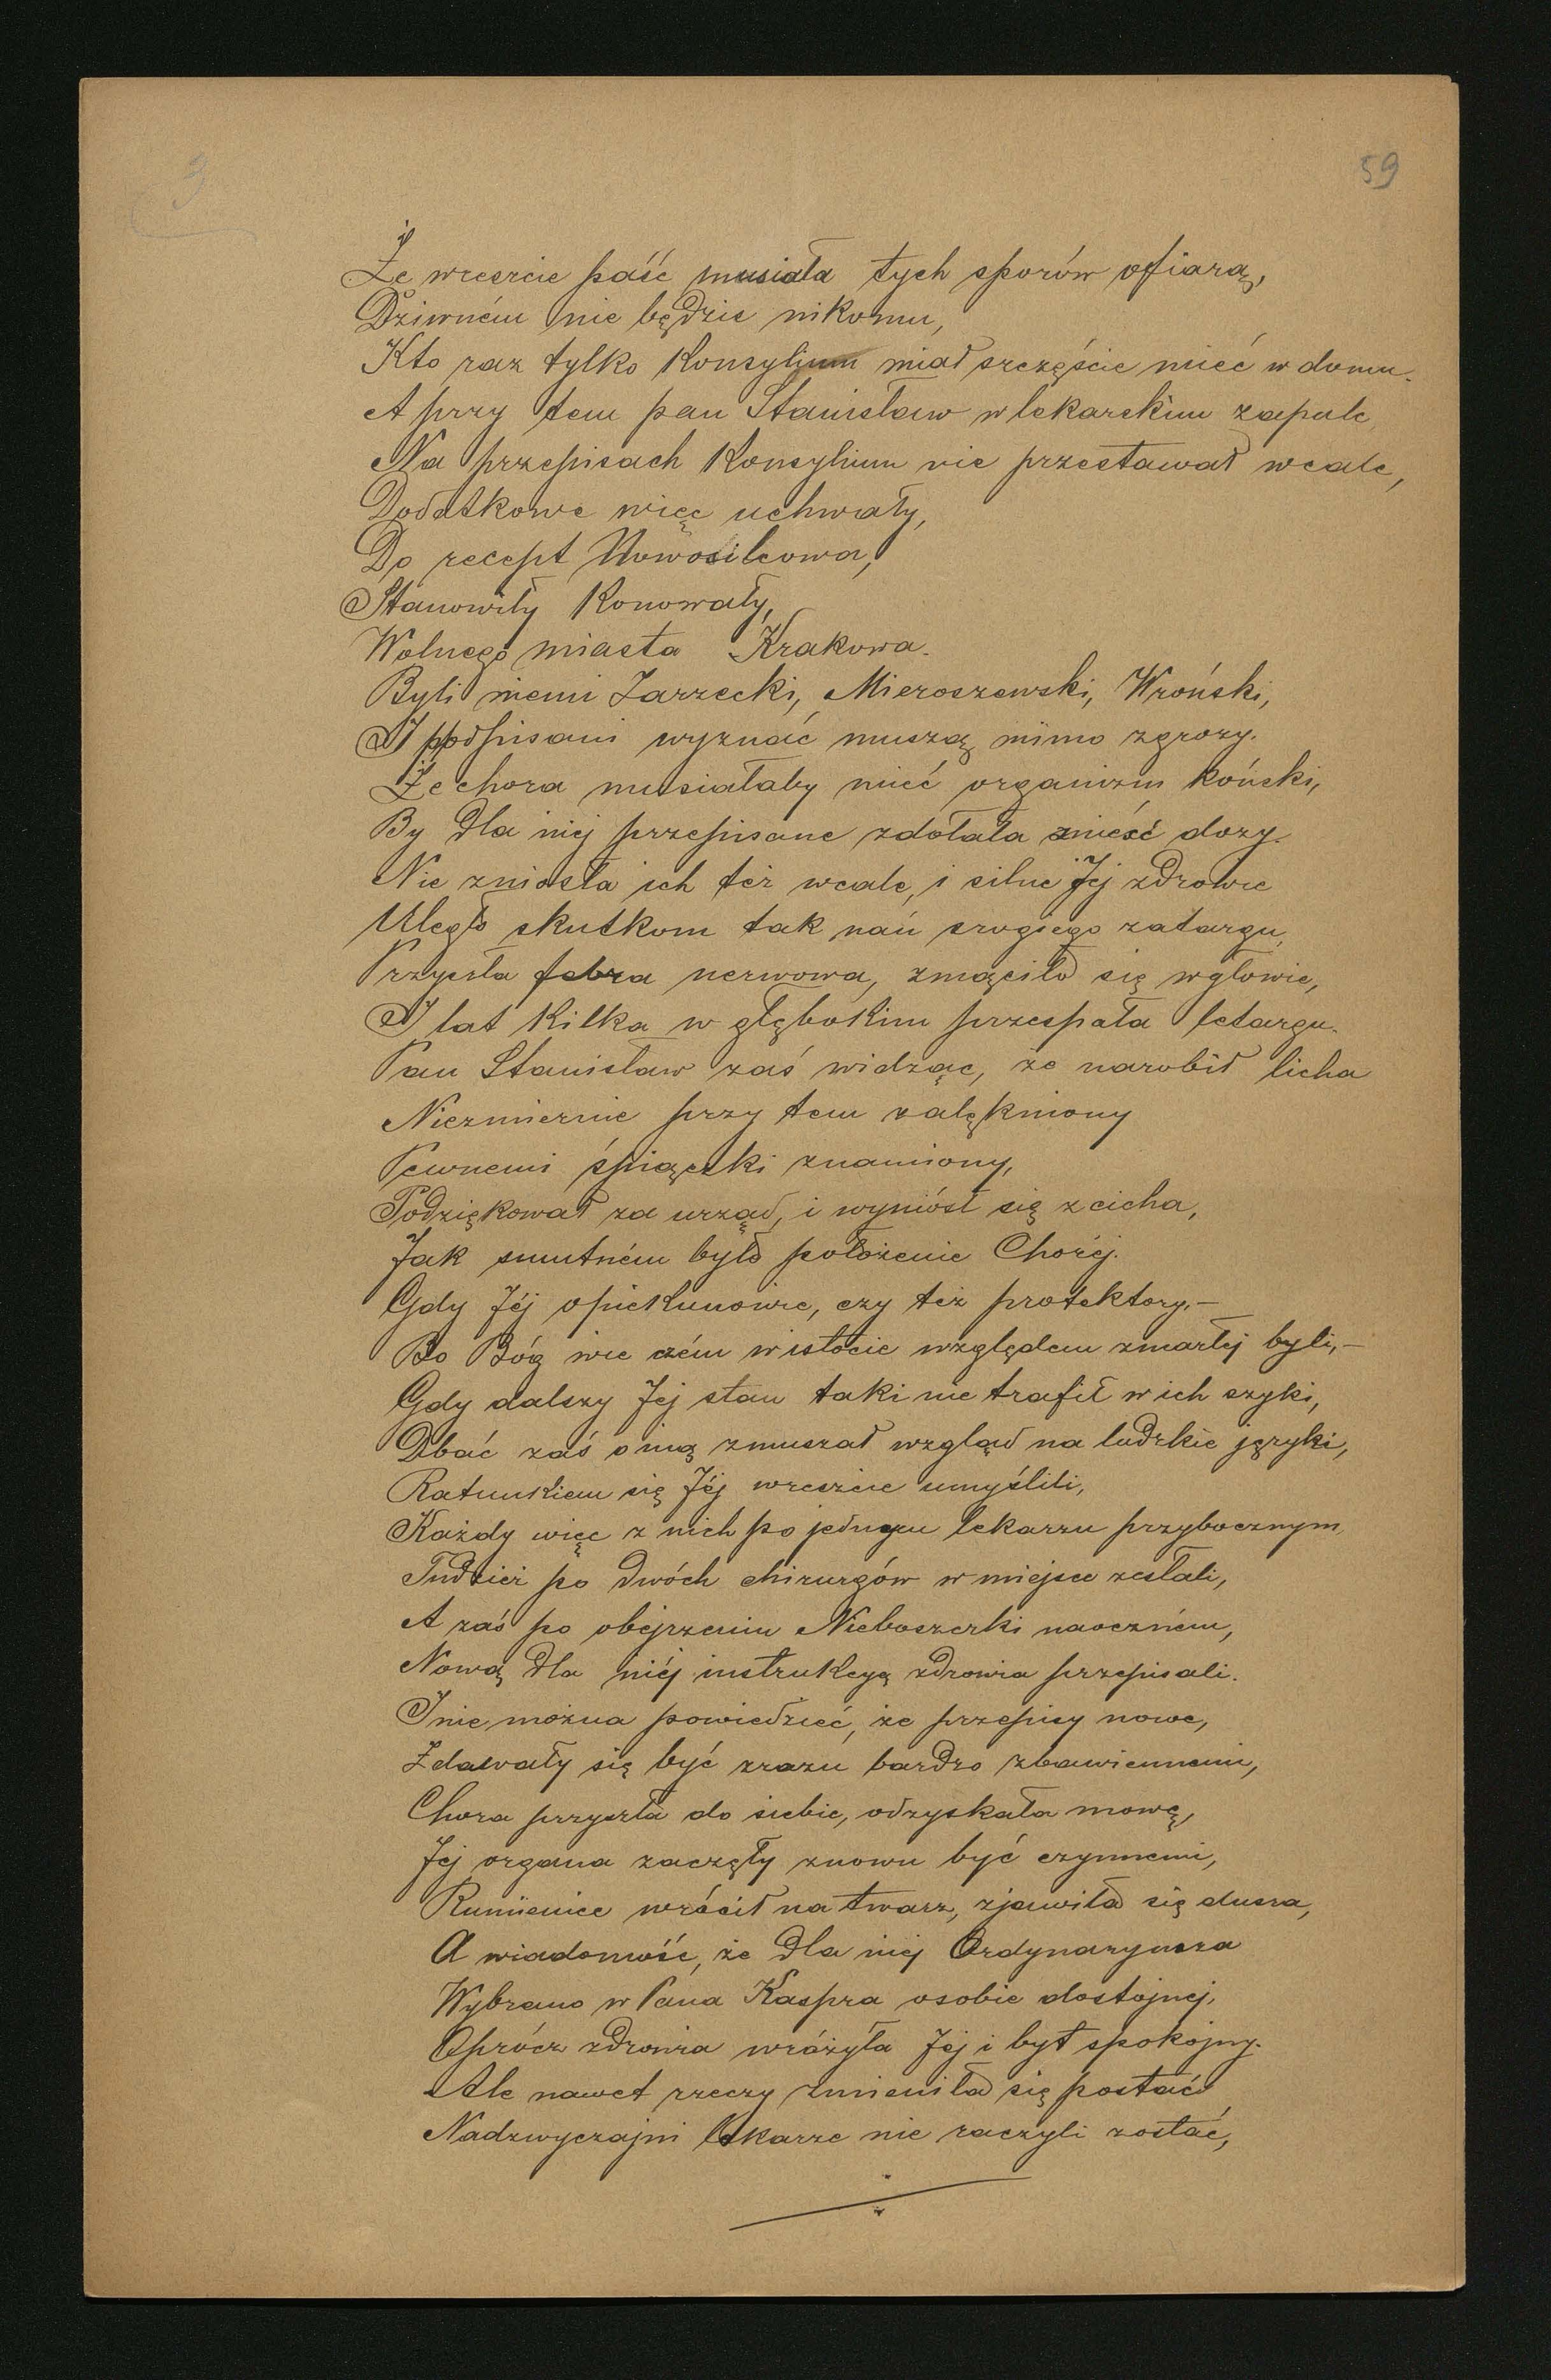 3
59
Że wreszcie paść musiała tych sporów ofiarą,
Dziwném nie będzie nikomu,
Kto raz tylko Konsylium miał szczęście mieć w domu.
A przy tem pan Stanisław w lekarskim zapale
Na przepisach Konsylium nie przestawał wcale,
Dodatkowe więc uchwały,
Do recept Nowosilcowa,
Stanowiły Konowały,
Wolnego miasta Krakowa.
Byli niemi Zarzecki, Mieroszewski, Wroński,
I podpisani wyznać muszą mimo zgrozy.
Że chora musiałaby mieć organizm koński,
By dla niej przepisane zdołała znieść dozy.
Nie zniosła ich też wcale, i silne Jej zdrowie
Uległo skutkom tak nań srogiego zatargu,
Przyszła febra nerwowa, zmąciło się w głowie,
I lat kilka w głębokim przespała letargu.
Pan Stanisław zaś widząc, że narobił licha
Niezmiernie przy tem zalękniony
Pewnemi śpiączki znamiony,
Podziękował za urząd, i wyniósł się z cicha,
Jak smutném było położenie Choréj.
Gdy Jéj opiekunowie, czy też protektory,—
Bo Bóg wie czém w istocie względem zmarłéj byli,—
Gdy dalszy Jej stan taki nie trafił w ich szyki,
Dbać zaś o nią zmuszał wzgląd na ludzkie języki,
Ratunkiem się Jéj wreszcie umyślili,
Każdy więc z nich po jednym lekarzu przybocznym
Tudzież po dwóch chirurgów w miejsce zesłali,
A zaś po obejrzeniu Nieboszczki naoczném,
Nową dla niéj instrukcyą zdrowia przepisali.
I nie można powiedzieć, że przepisy nowe,
Zdawały się być zrazu bardzo zbawiennemi,
Chora przyszła do siebie, odzyskała mowę,
Jej organa zaczęły znowu być czynnemi,
Rumieniec wrócił na twarz, zjawiła się dusza,
A wiadomość, że dla niej Ordynaryusza
Wybrano w Pana Kaspra osobie dostojnej,
Oprócz zdrowia wróżyła Jej i byt spokojny.
Ale nawet rzeczy zmieniła się postać,
Nadzwyczajni lekarze nie raczyli zostać,